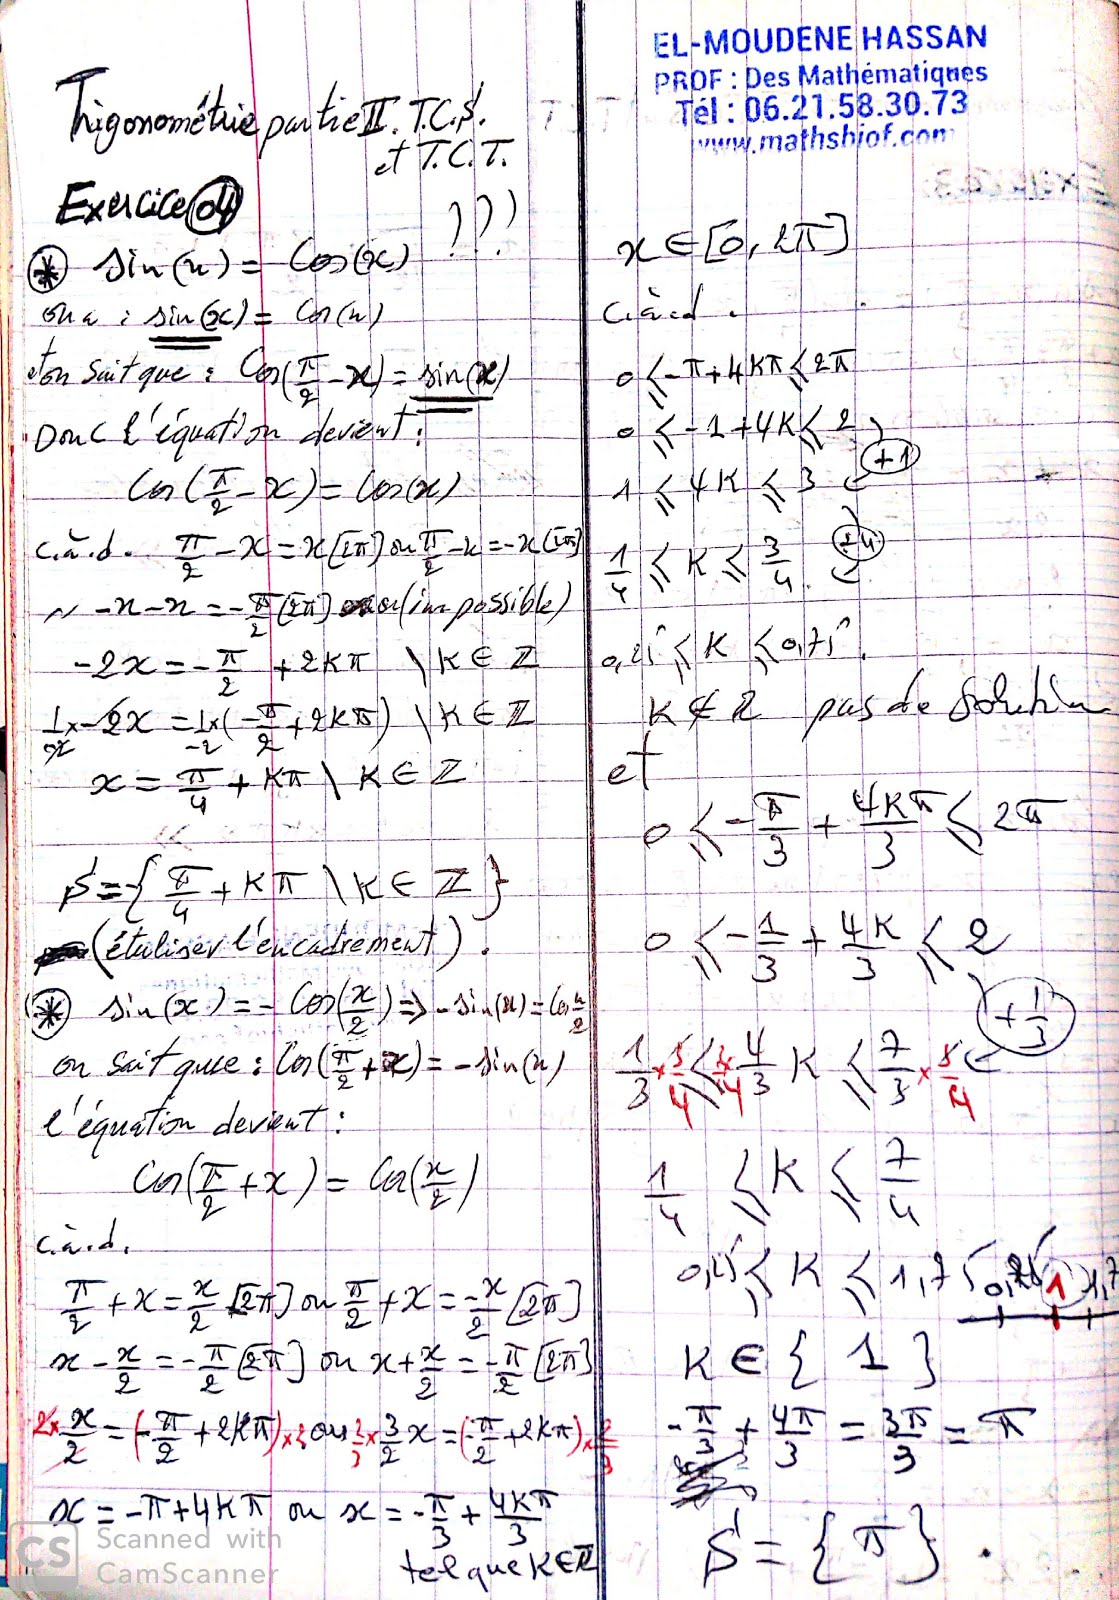 EL-MOUDENE HASSAN
PROF : Des Mathématiques
Tél : 06.21.58.30.73
www.mathsbiof.com
Trigonométrie partie II. T.C.S.
et T.C.T.
Exercice 04
* sin(x) = Cos(x) ???
on a : sin(x) = Cos(x)
et on sait que : Cos(π/2 - x) = sin(x)
Donc l'équation devient :
Cos(π/2 - x) = Cos(x)
c.à.d. π/2 - x = x [2π] ou π/2 - x = -x [2π]
" -x - x = -π/2 [2π] ou (impossible)
-2x = -π/2 + 2kπ \ k ∈ ℤ
1/-2 x -2x = 1/-2 x (-π/2 + 2kπ) \ k ∈ ℤ
x = π/4 + kπ \ k ∈ ℤ
S = { π/4 + kπ \ k ∈ ℤ }
(étuliser l'encadrement).
* sin(x) = - Cos(x/2) => - sin(x) = Cos x/2
on sait que : Cos(π/2 + x) = - sin(x)
l'équation devient :
Cos(π/2 + x) = Cos(x/2)
c.à.d.
π/2 + x = x/2 [2π] ou π/2 + x = -x/2 [2π]
x - x/2 = -π/2 [2π] ou x + x/2 = -π/2 [2π]
2 x x/2 = (-π/2 + 2kπ) x 2 ou 2/3 x 3/2 x = (-π/2 + 2kπ) x 2/3
x = -π + 4kπ ou x = -π/3 + 4kπ/3
tel que k ∈ ℤ
x ∈ [0, 2π]
c.à.d.
0 ≤ -π + 4kπ ≤ 2π
0 ≤ -1 + 4k ≤ 2
+1
1 ≤ 4k ≤ 3
÷4
1/4 ≤ k ≤ 3/4.
0,25 ≤ k ≤ 0,75.
k ∉ ℤ pas de solution
et
0 ≤ -π/3 + 4kπ/3 ≤ 2π
0 ≤ -1/3 + 4k/3 ≤ 2
+ 1/3
1/3 x 3/4 ≤ 3/4 x 4/3 k ≤ 7/3 x 3/4
1/4 ≤ k ≤ 7/4
0,25 ≤ k ≤ 1,75 0,25 1 1,7
k ∈ { 1 }
-π/3 + 4π/3 = 3π/3 = π
S = { π } .
CS Scanned with
CamScanner